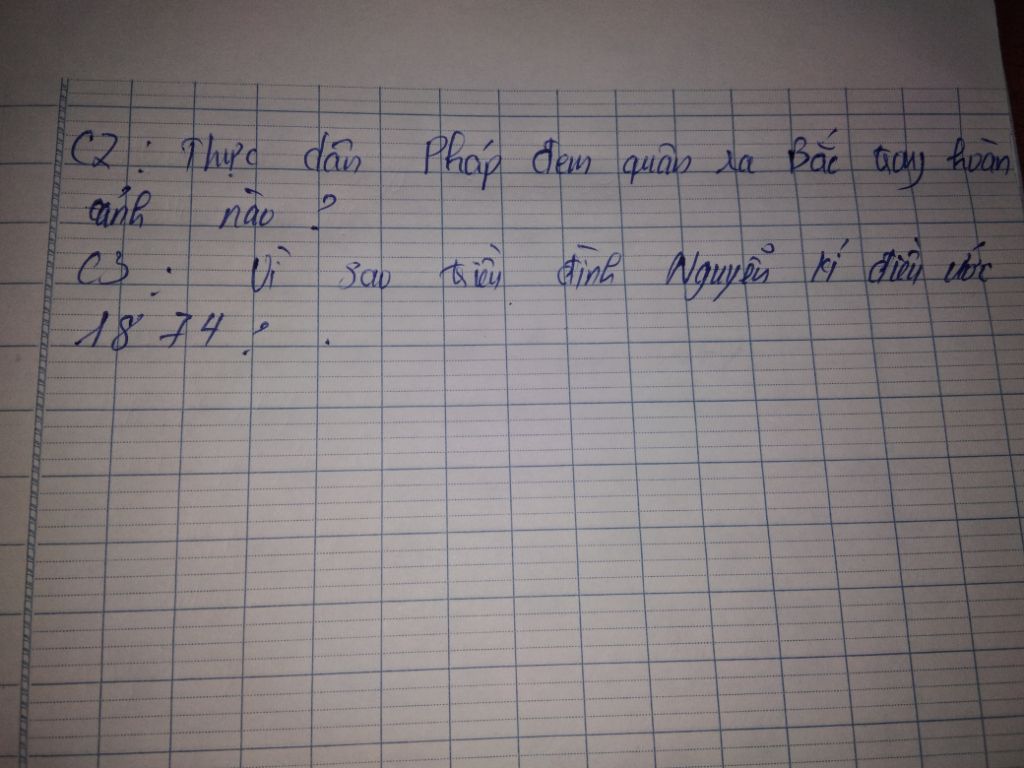 C2 : Thực dân Pháp đem quân ra Bắc trong hoàn
cảnh nào ?
C3 : Vì sao triều đình Nguyễn kí điều ước
1874 ?